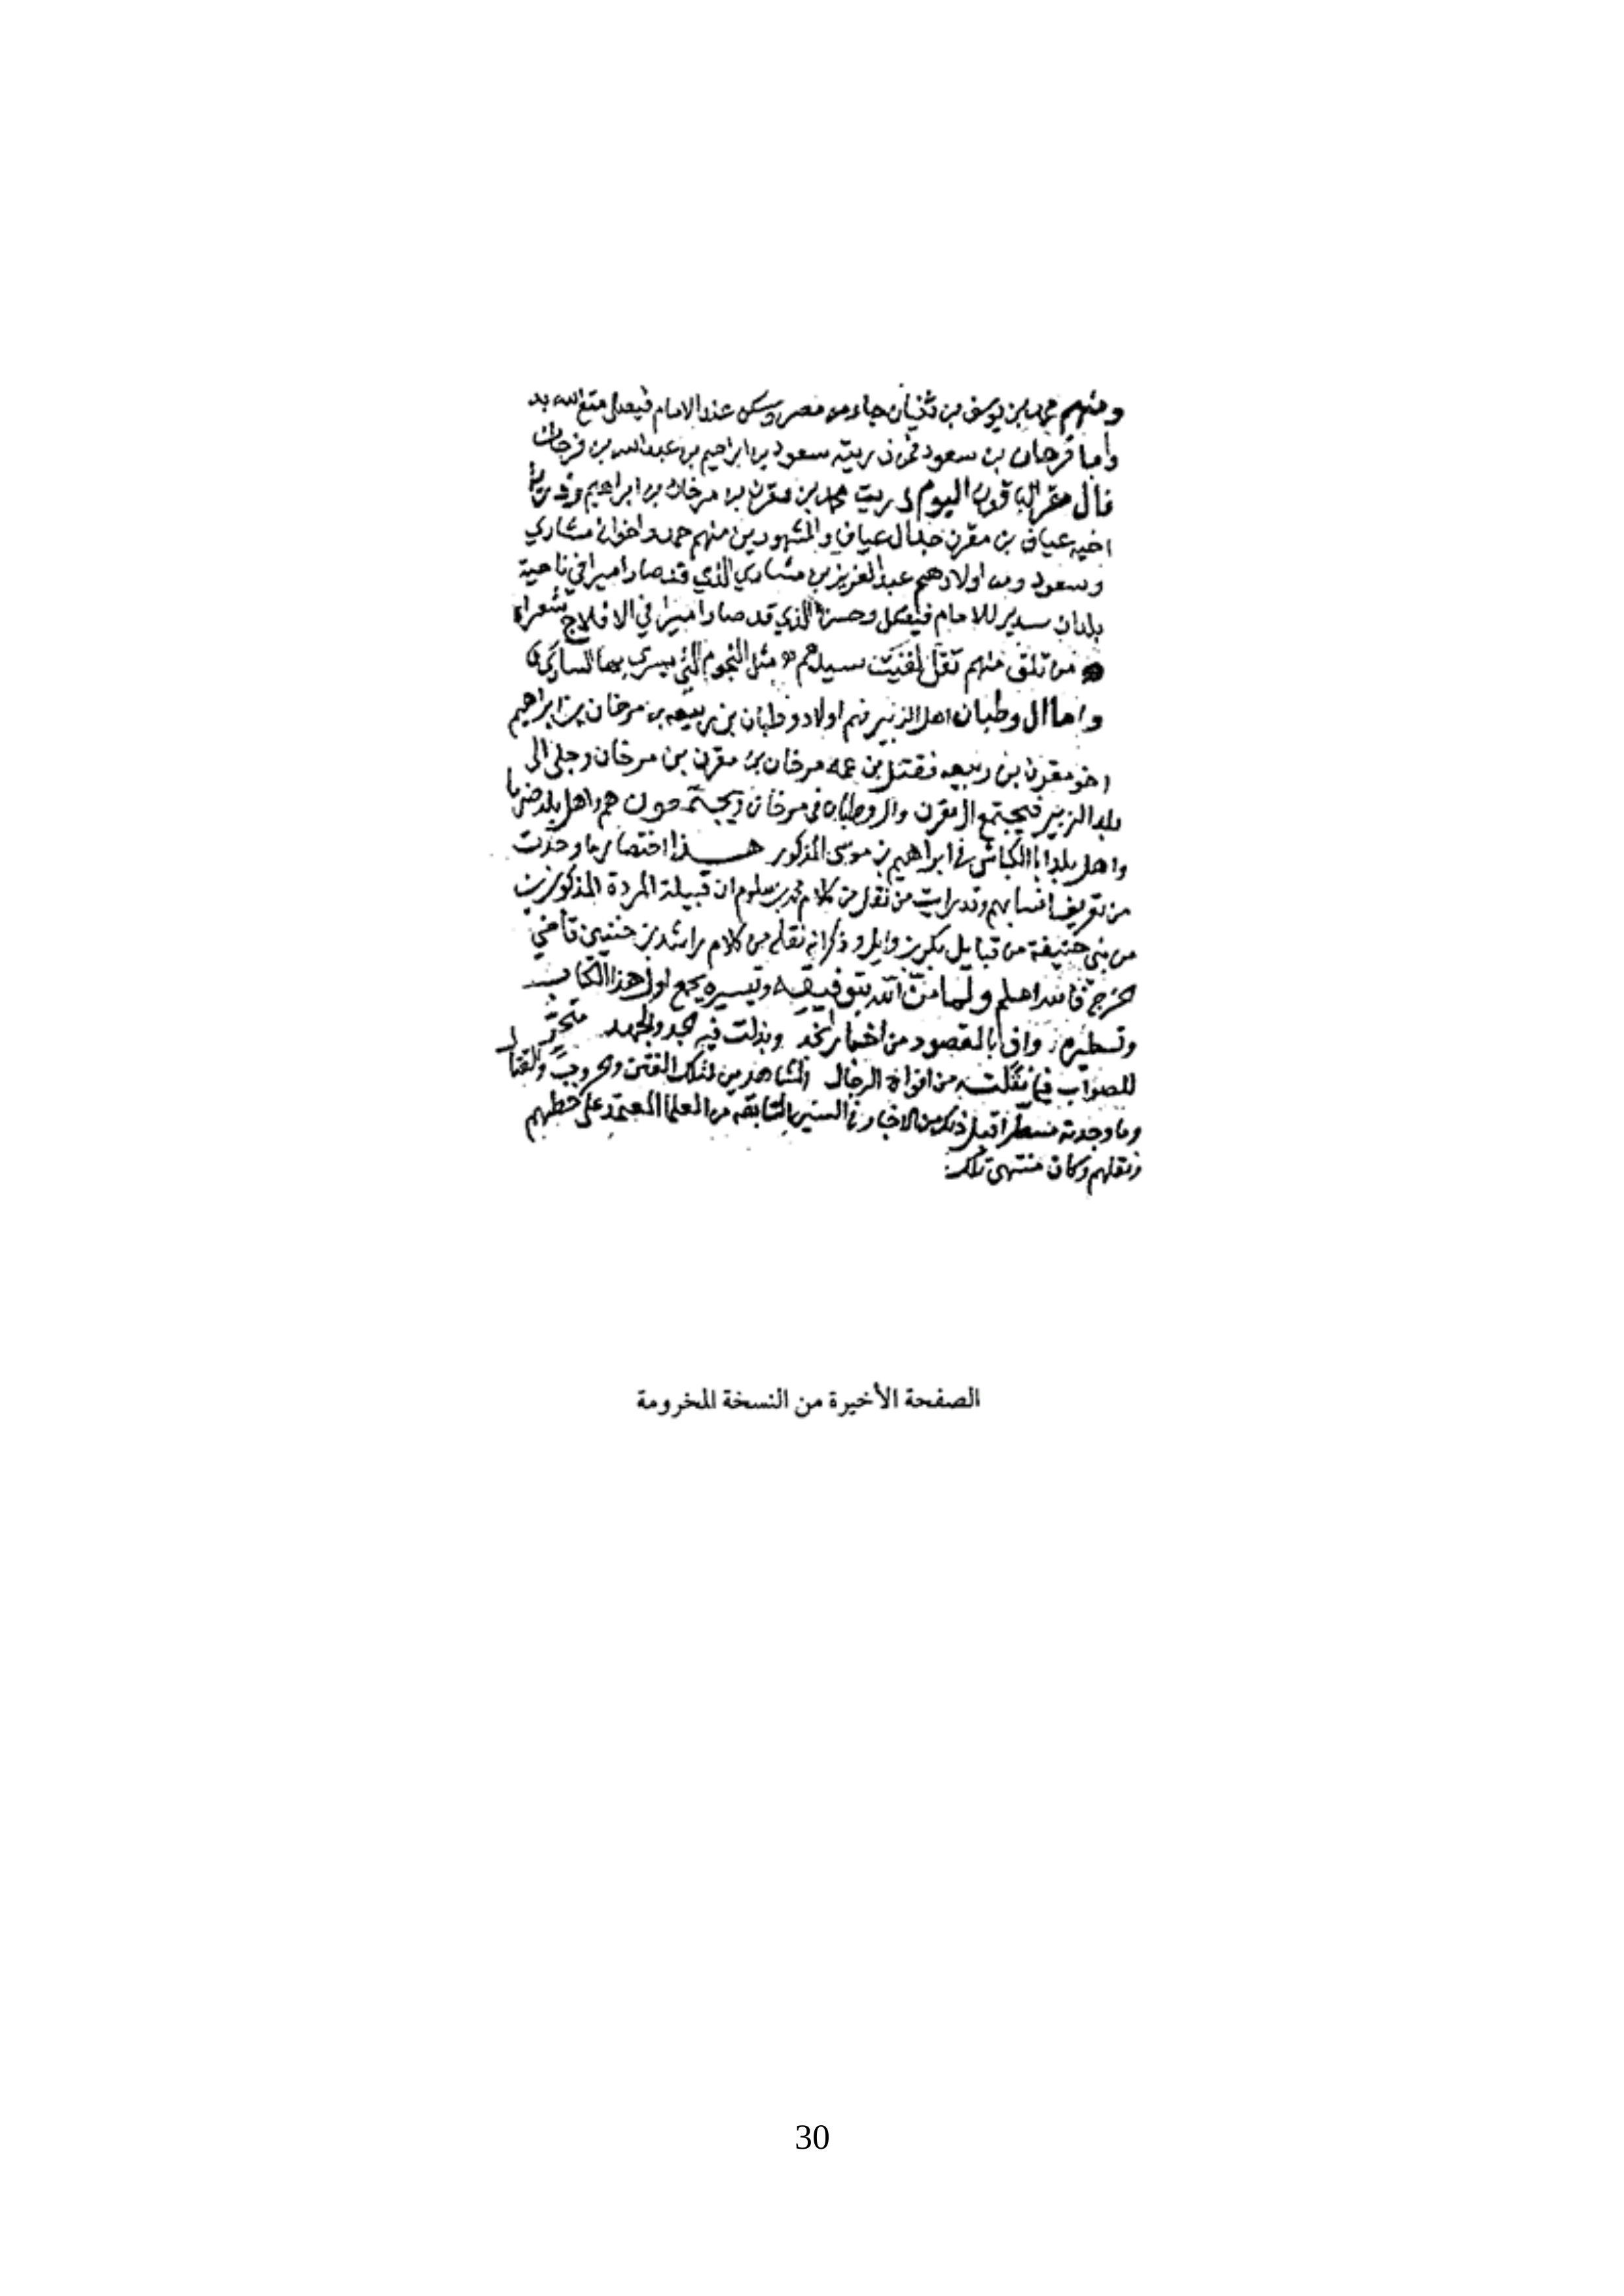 ومنهم محمد بن يوسف بن ثنيان جاء من مصر وسكن عند الامام فيصل متع الله به
واما فرحان بن سعود فمن ذريته سعود بن ابراهيم بن عبدالله بن فرحان
فال مقرن اليوم ذريت محمد بن مقرن بن مرخان بن ابراهيم وذرية
اخيه عياف بن مقرن جد ال عياف والمشهودين منهم حمد واخوانه مشاري
وسعود ومن اولادهم عبدالعزيز بن مشاري الذي قد صار اميرا في ناحية
بلدان سدير للامام فيصل وحسن الذي قد صار اميرا في الافلاج شعرا
من تلق منهم تقل لقيت سيدهم مثل النجوم التي يسري بها الساري
واما ال وطبان اهل الزبير فهم اولاد وطبان بن ربيعه بن مرخان بن ابراهيم
اخو مقرن بن ربيعه فقتل بن عمه مرخان بن مقرن بن مرخان وجلى الى
بلد الزبير فيجتمع ال مقرن وال وطبان في مرخان ويجتمعون هم واهل بلد ضرما
واهل بلد ابا الكباش في ابراهيم بن موسى المذكور هذا اختصار ما وجدت
من تعريف انسابهم وقد رايت من نقل من كلام محمد بن سلوم ان قبيلة المردة المذكورين
من بني حنيفة من قبايل بكر بن وايل وذكر انه نقله من كلام راشد بن خنين قاضي
الخرج فالله اعلم ولما من الله بتوفيقه وتيسيره بجمع اول هذا الكتاب
وتسطيره واف بالمقصود من اخبار نجد وبذلت فيه الجد والجهد متحر
للصواب فيما نقلته من افواه الرجال المشاهدين لتلك الفتن والحروب والقتال
وما وجدته مسطرا قبل ذلك من الاخبار في السنين السابقه من العلما المعتمد على خطهم
ونقلهم وكان منتهى تلك
الصفحة الأخيرة من النسخة المخرومة
30